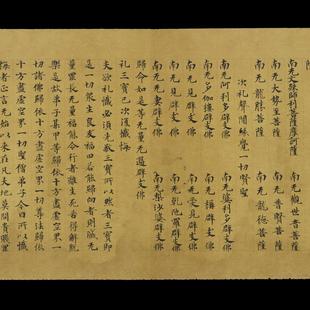 南无文殊師利菩薩摩訶薩
南无觀世音菩薩
南无大勢至菩薩 南无普賢菩薩
南无龍勝菩薩 南无龍德菩薩
次礼聲聞緣覺一切賢聖
南无阿利多辟支佛 南无婆利多辟支佛
南无多伽樓辟支佛 南无稱辟支佛
南无見辟支佛 南无愛見辟支佛
南无覺辟支佛 南无乾陀羅辟支佛
南无妻辟支佛 南无梨沙婆辟支佛
歸命如是等无量无邊辟支佛
礼三寶已次復懺悔
夫欲礼懺必須先敬三寶所以然者三寶即
是一切眾生良友福田若能歸向者則滅无
量罪長无量福能令行者離生死苦得解脫
樂是故弟子某甲等歸依十方盡虛空界一
切諸佛歸依十方盡虛空界一切尊法歸依
十方盡虛空界一切聖僧弟子今日所以懺
悔者正言无始以來在凡夫地莫問貴賤罪